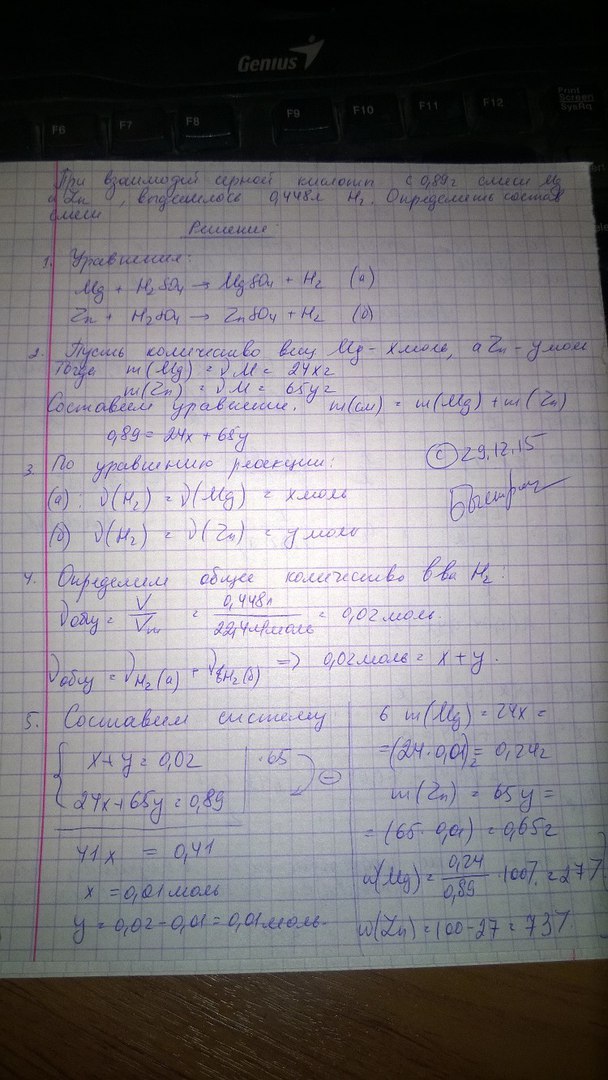 Genius
Print
Screen
SysRq
F6 F7 F8 F9 F10 F11 F12
При взаимодей серной кислоты с 0,89г смеси Mg
и Zn , выделилось 0,448л H2. Определить состав
смеси
Решение
1. Уравнения:
Mg + H2SO4 → MgSO4 + H2 (а)
Zn + H2SO4 → ZnSO4 + H2 (б)
2. Пусть количество вещ Mg - x моль, а Zn - y моль
Тогда m(Mg) = νM = 24xг
m(Zn) = νM = 65yг
Составим уравнение. m(см) = m(Mg) + m(Zn)
0,89 = 24x + 65y
3. По уравнению реакции:
© 29.12.15
(а): ν(H2) = ν(Mg) = x моль
(б) ν(H2) = ν(Zn) = y моль
4. Определим общее количество в-ва H2.
νобщ = V/Vm = 0,448л/22,4л/моль = 0,02 моль.
νобщ = νH2(а) + νH2(б) => 0,02 моль = x + y.
5. Составим систему
x + y = 0,02 | ·65
24x + 65y = 0,89
41x = 0,41
x = 0,01 моль
y = 0,02 - 0,01 = 0,01 моль
6 m(Mg) = 24x =
= (24·0,01) = 0,24г
m(Zn) = 65y =
= (65·0,01) = 0,65г
w(Mg) = 0,24/0,89 · 100% = 27%
w(Zn) = 100 - 27 = 73%